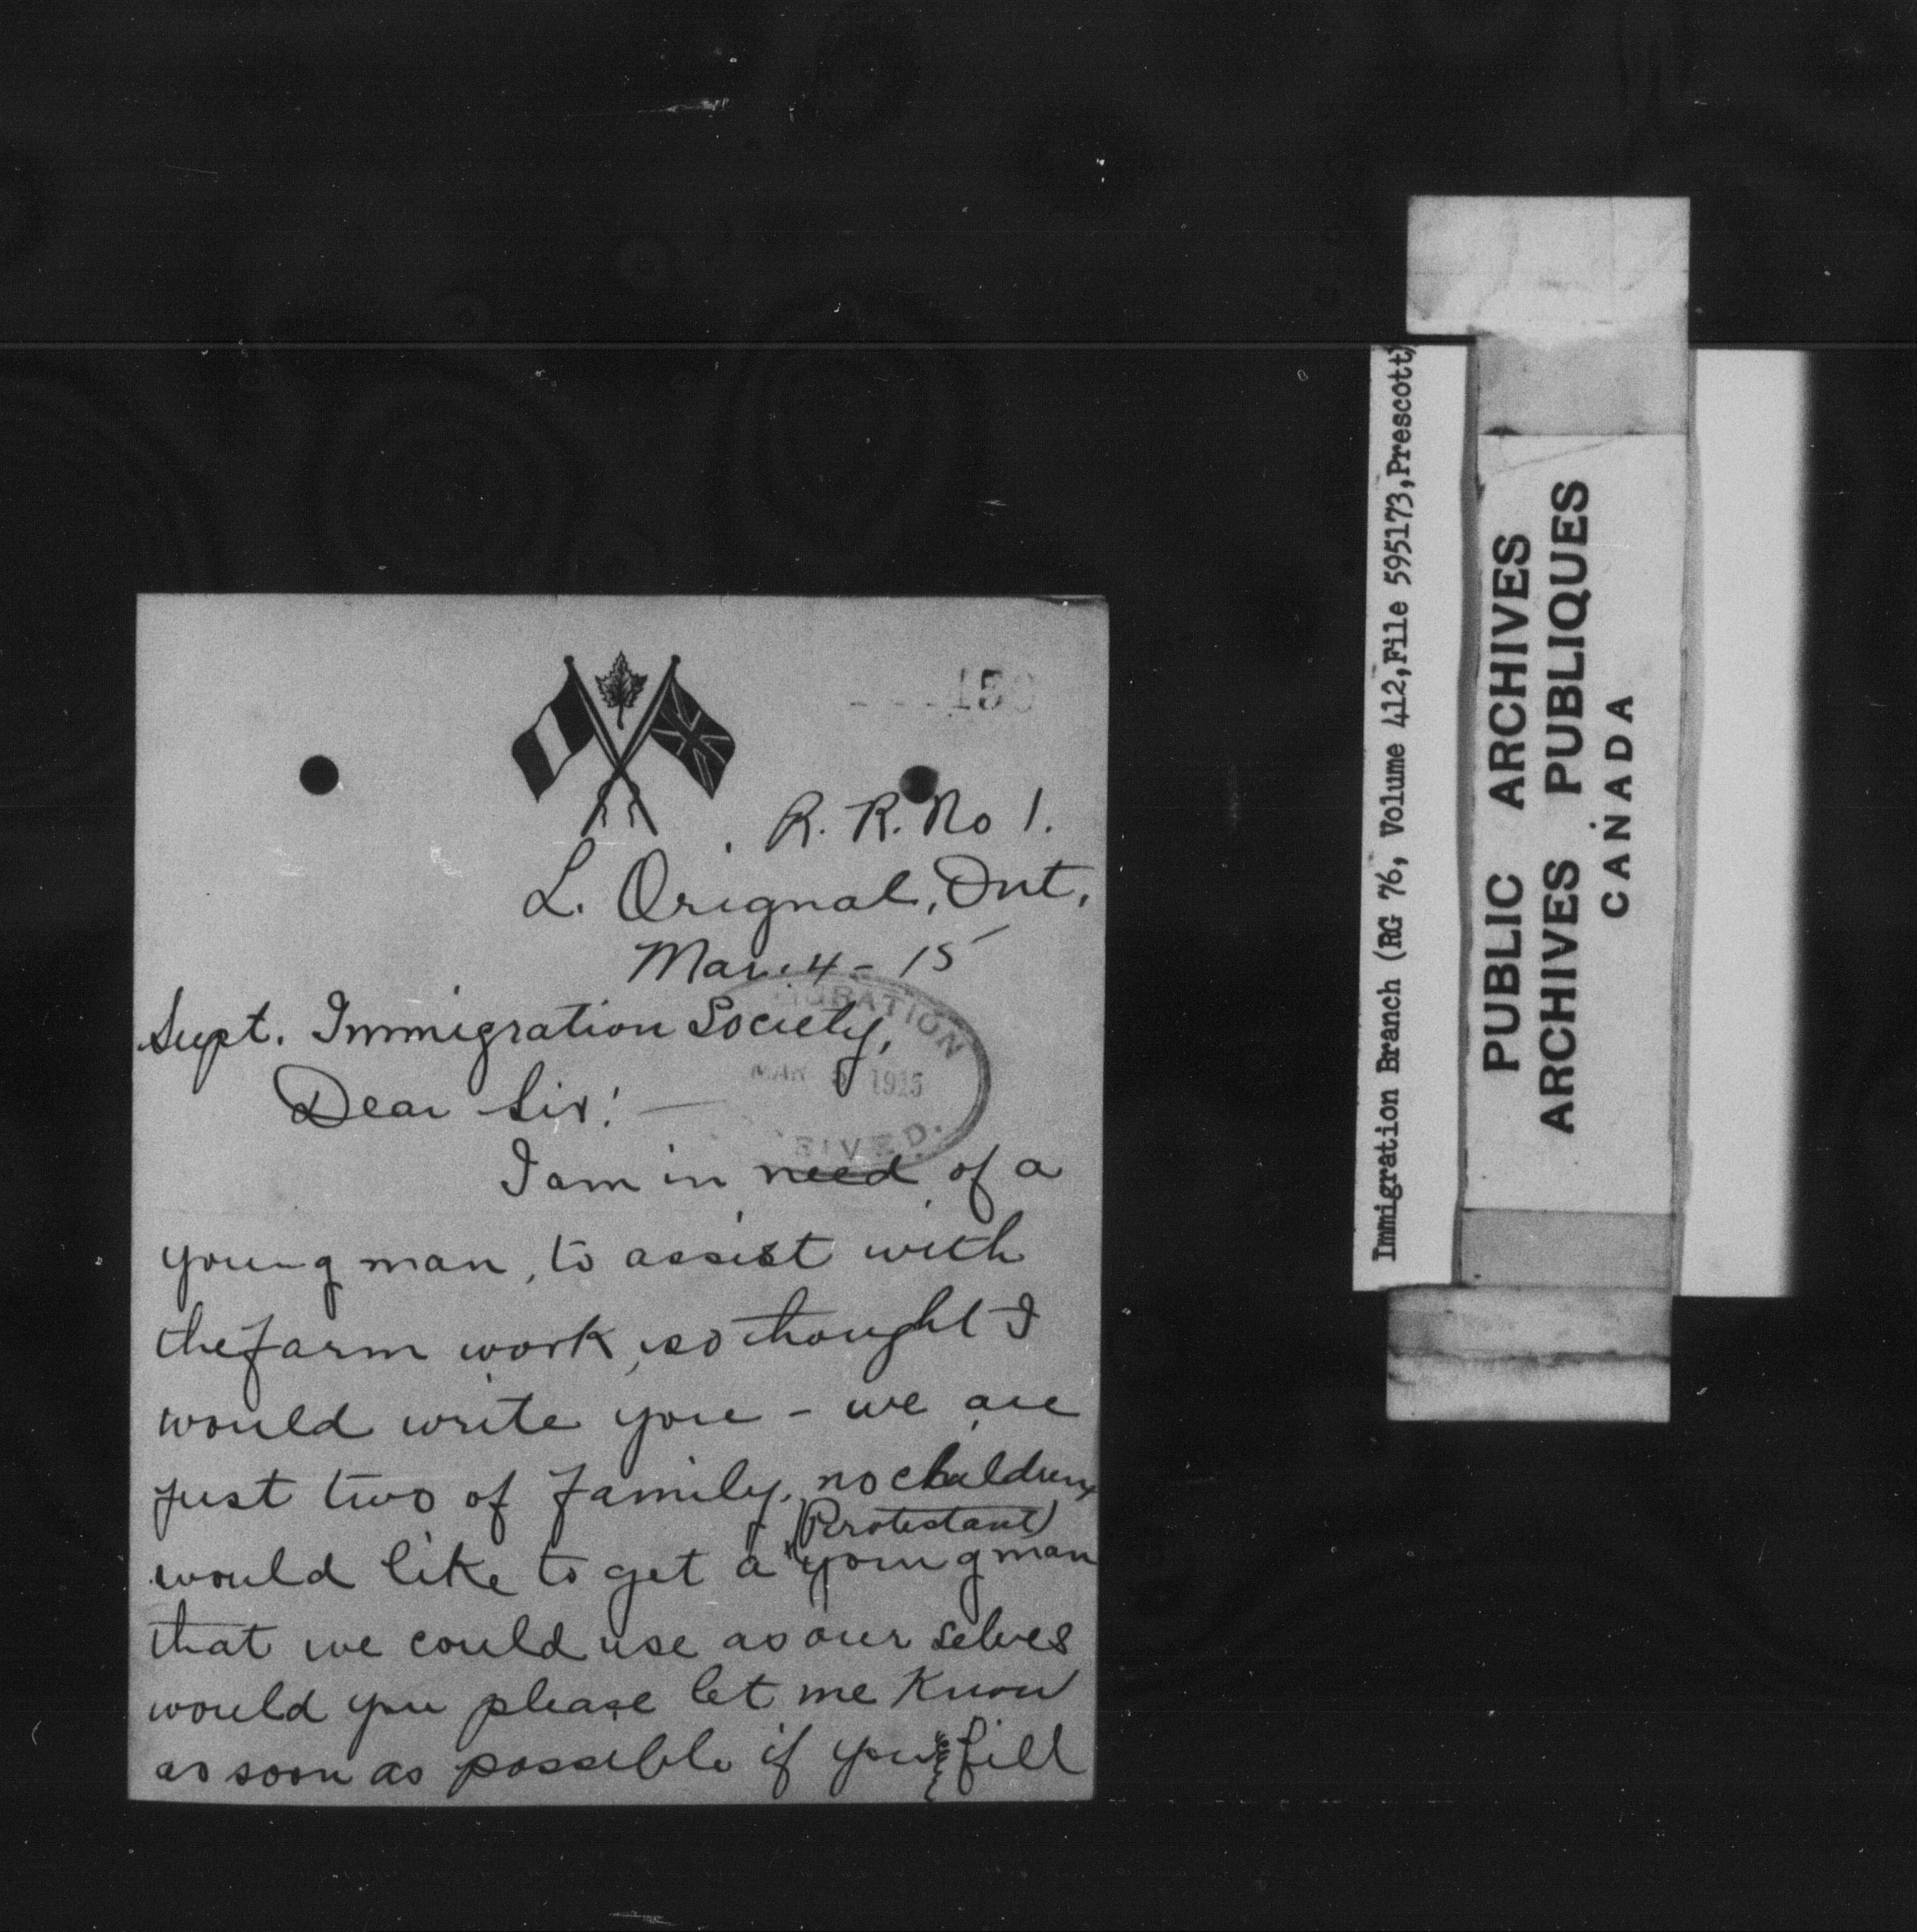 R. R. No 1.
L. Orignal, Ont,
Mar. 4 - 15
Supt. Immigration Society,
Dear Sir! —
I am in need of a
young man, to assist with
the farm work, so thought I
would write you - we are
just two of family, no children
(Protestant)
would like to get a young man
that we could use as our selves
would you please let me know
as soon as possible if you fill
MAR 1915
Immigration Branch (RG 76, Volume 412, File 595173, Prescott)
PUBLIC ARCHIVES
ARCHIVES PUBLIQUES
CANADA